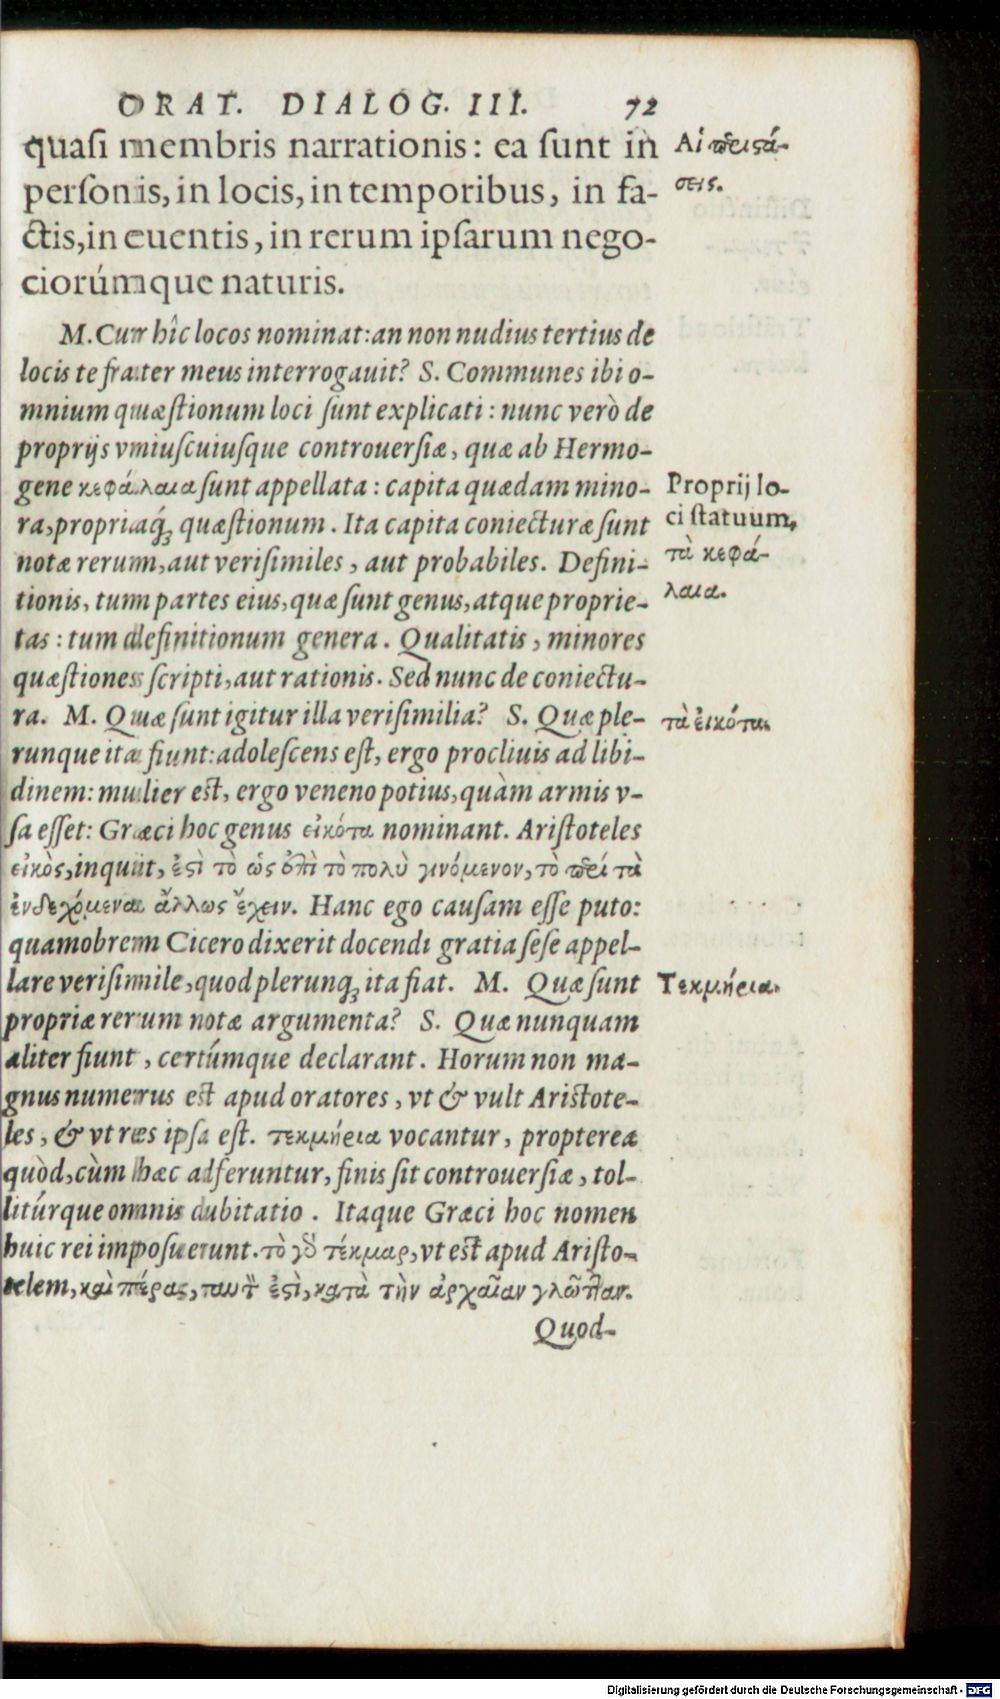 ORAT. DIALOG. III. 72
quaſi membris narrationis: ea ſunt in
perſonis, in locis, in temporibus, in fa-
ctis, in euentis, in rerum ipſarum nego-
ciorúmque naturis.
Αἱ περιστά-
σεις.
M. Cur hîc locos nominat: an non nudius tertius de
locis te frater meus interrogauit? S. Communes ibi o-
mnium quæſtionum loci ſunt explicati: nunc verò de
proprijs vniuſcuiuſque controuerſiæ, quæ ab Hermo-
gene κεφάλαια ſunt appellata: capita quædam mino-
ra, propriaq́; quæſtionum. Ita capita coniecturæ ſunt
notæ rerum, aut veriſimiles, aut probabiles. Defini-
tionis, tum partes eius, quæ ſunt genus, atque proprie-
tas: tum definitionum genera. Qualitatis, minores
quæſtiones ſcripti, aut rationis. Sed nunc de coniectu-
ra. M. Quæ ſunt igitur illa veriſimilia? S. Quæ ple-
runque ita fiunt: adoleſcens eſt, ergo procliuis ad libi-
dinem: mulier eſt, ergo veneno potius, quàm armis v-
ſa eſſet: Græci hoc genus εἰκότα nominant. Ariſtoteles
εἰκὸς, inquit, ἐστὶ τὸ ὡς ἐπὶ τὸ πολὺ γινόμενον, τὸ περὶ τὰ
ἐνδεχόμενα ἄλλως ἔχειν. Hanc ego cauſam eſſe puto:
quamobrem Cicero dixerit docendi gratia ſeſe appel-
lare veriſimile, quod plerunq; ita fiat. M. Quæ ſunt
propriæ rerum notæ argumenta? S. Quæ nunquam
aliter fiunt, certúmque declarant. Horum non ma-
gnus numerus eſt apud oratores, vt & vult Ariſtote-
les, & vt res ipſa eſt. τεκμήρια vocantur, propterea
quòd, cùm hæc adferuntur, finis ſit controuerſiæ, tol-
litúrque omnis dubitatio. Itaque Græci hoc nomen
huic rei impoſuerunt. τὸ γὰρ τέκμαρ, vt eſt apud Ariſto-
telem, καὶ πέρας, ταυτόν ἐστὶ, κατὰ τὴν ἀρχαῖαν γλῶτταν.
Quod-
Proprij lo-
ci ſtatuum,
τὰ κεφά-
λαια.
τὰ εἰκότα.
Τεκμήρια.
Digitalisierung gefördert durch die Deutsche Forschungsgemeinschaft - DFG